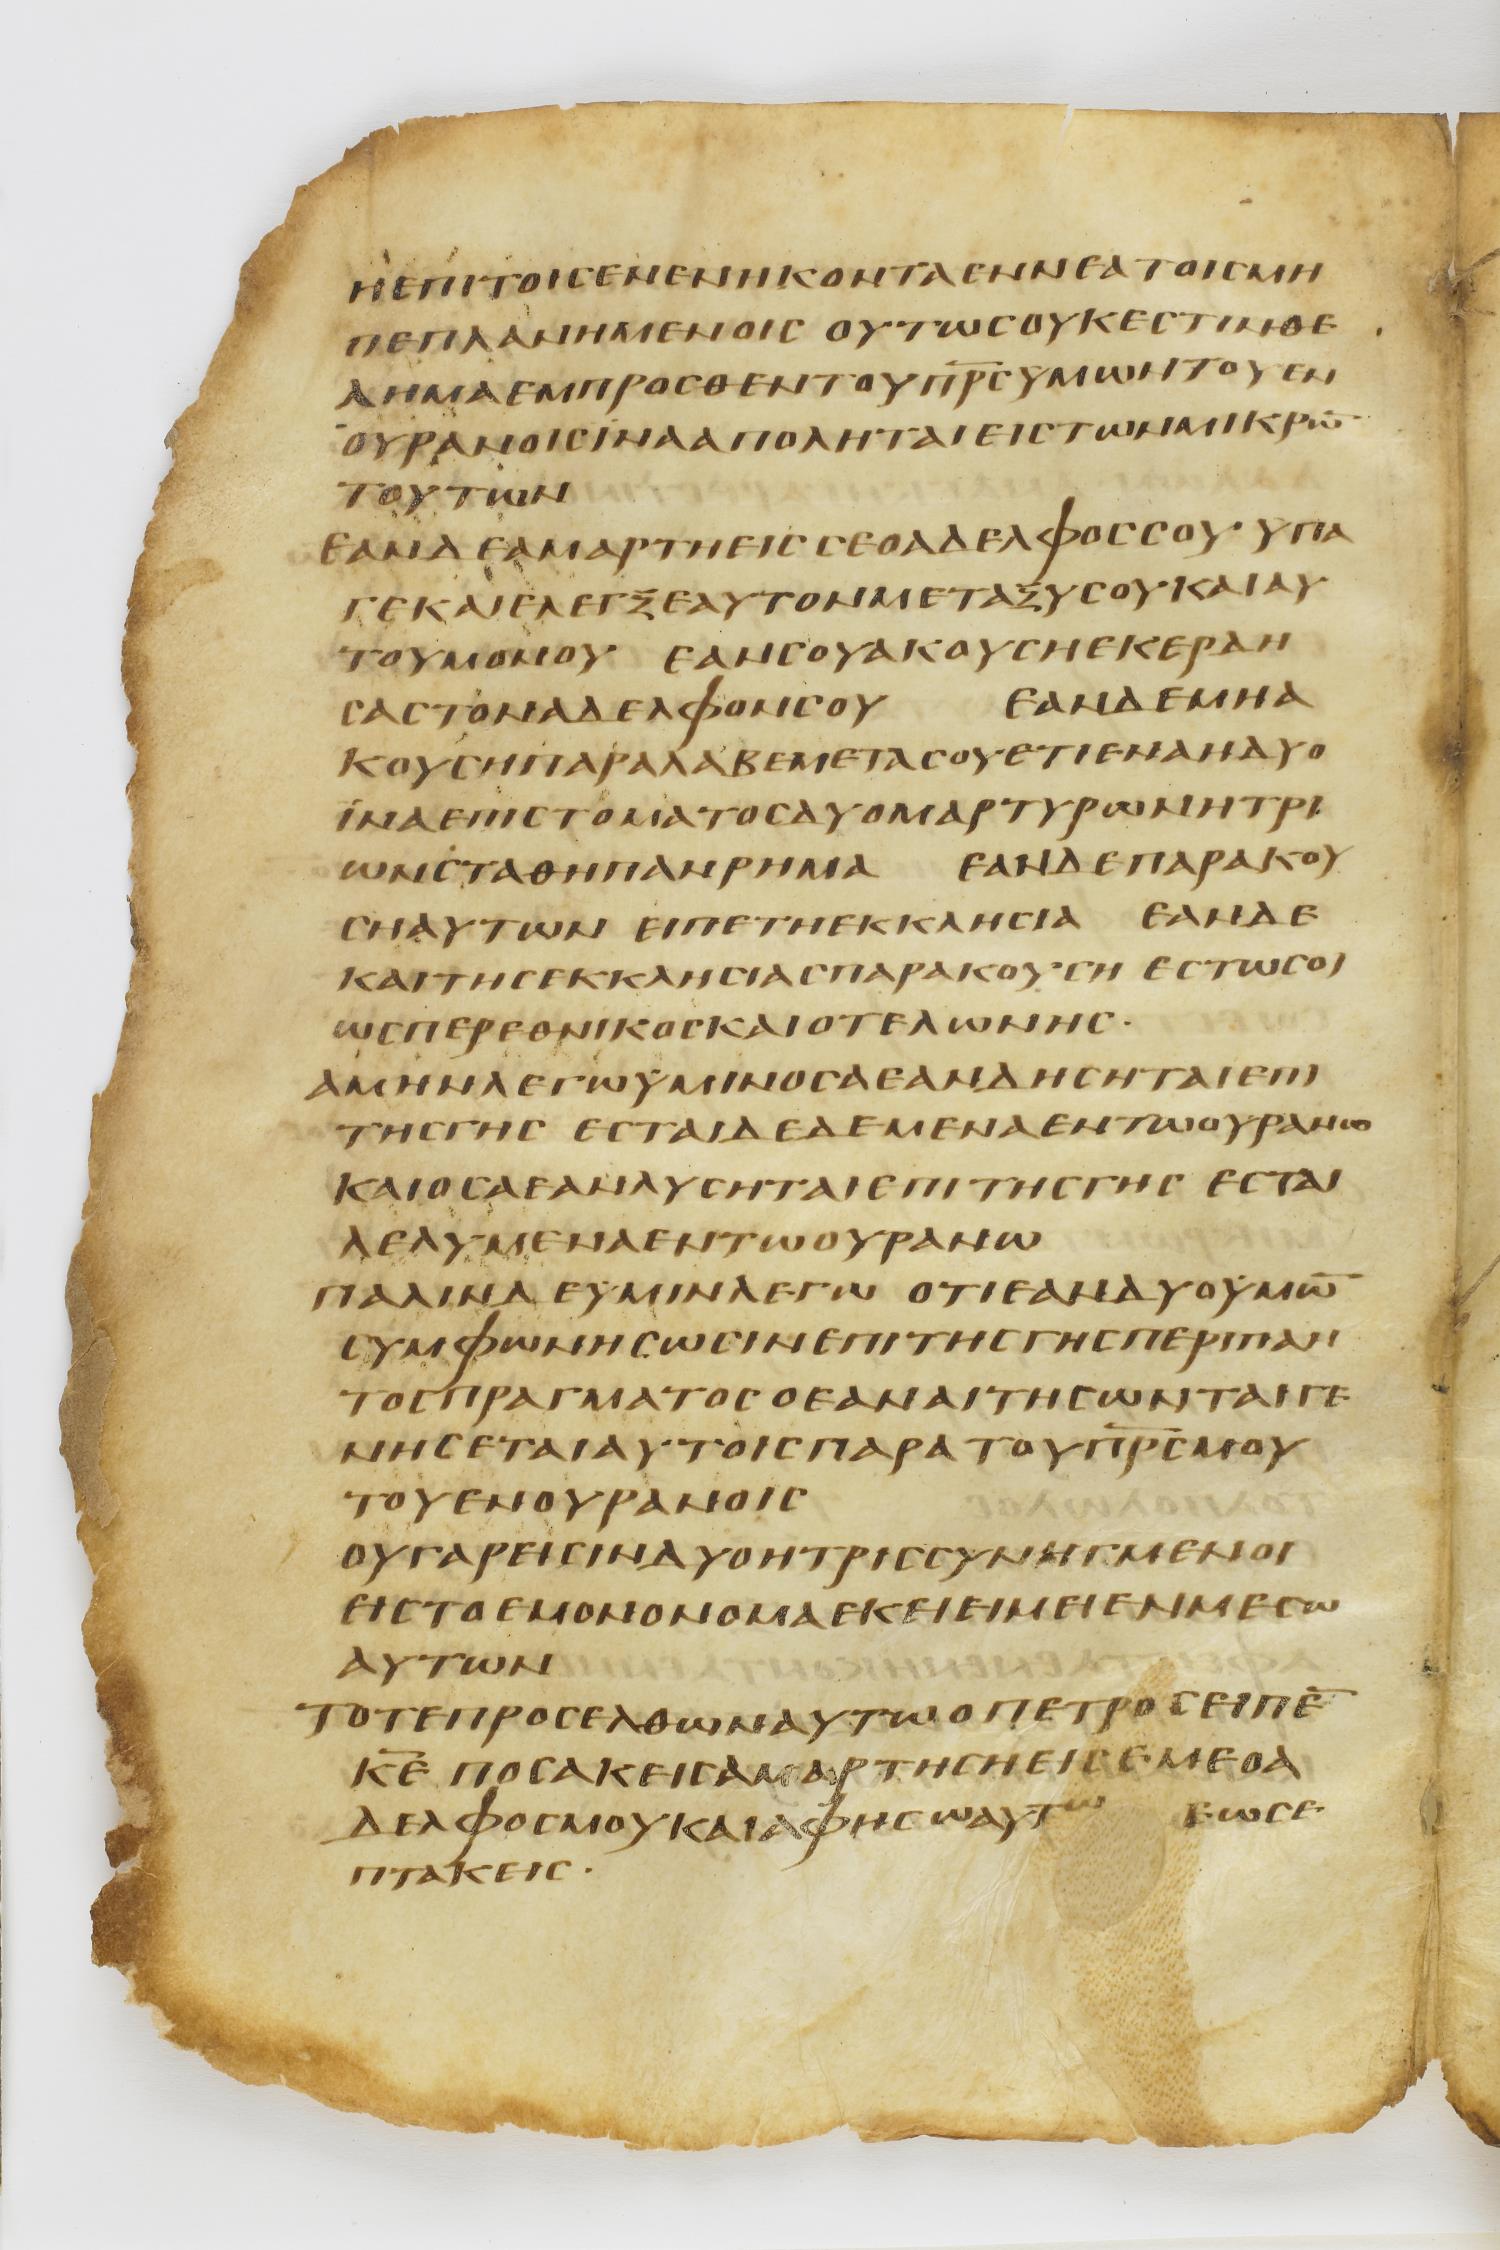 ΗΕΠΙΤΟΙϹΕΝΕΝΗΚΟΝΤΑΕΝΝΕΑΤΟΙϹΜΗ
ΠΕΠΛΑΝΗΜΕΝΟΙϹ ΟΥΤΩϹΟΥΚΕϹΤΙΝΘΕ
ΛΗΜΑΕΜΠΡΟϹΘΕΝΤΟΥΠ̅Ρ̅Ϲ̅ΥΜΩΝΤΟΥΕΝ
ΟΥΡΑΝΟΙϹΪΝΑΑΠΟΛΗΤΑΙΕΙϹΤΩΝΜΙΚΡΩ̅
ΤΟΥΤΩΝ
ΕΑΝΔΕΑΜΑΡΤΗΕΙϹϹΕΟΑΔΕΛΦΟϹϹΟΥ· ΥΠΑ
ΓΕΚΑΙΕΛΕΓΞΕΑΥΤΟΝΜΕΤΑΞΥϹΟΥΚΑΙΑΥ
ΤΟΥΜΟΝΟΥ ΕΑΝϹΟΥΑΚΟΥϹΗΕΚΕΡΔΗ
ϹΑϹΤΟΝΑΔΕΛΦΟΝϹΟΥ ΕΑΝΔΕΜΗΑ
ΚΟΥϹΗΠΑΡΑΛΑΒΕΜΕΤΑϹΟΥΕΤΙΕΝΑΗΔΥΟ
ΪΝΑΕΠΙϹΤΟΜΑΤΟϹΔΥΟΜΑΡΤΥΡΩΝΗΤΡΙ
ΩΝϹΤΑΘΗΠΑΝΡΗΜΑ ΕΑΝΔΕΠΑΡΑΚΟΥ
ϹΗΑΥΤΩΝ ΕΙΠΕΤΗΕΚΚΛΗϹΙΑ ΕΑΝΔΕ
ΚΑΙΤΗϹΕΚΚΛΗϹΙΑϹΠΑΡΑΚΟΥϹΗ ΕϹΤΩϹΟΙ
ΩϹΠΕΡΕΘΝΙΚΟϹΚΑΙΟΤΕΛΩΝΗϹ·
ΑΜΗΝΛΕΓΩΫΜΙΝΟϹΑΕΑΝΔΗϹΗΤΑΙΕΠΙ
ΤΗϹΓΗϹ ΕϹΤΑΙΔΕΔΕΜΕΝΑΕΝΤΩΟΥΡΑΝΩ
ΚΑΙΟϹΑΕΑΝΛΥϹΗΤΑΙΕΠΙΤΗϹΓΗϹ ΕϹΤΑΙ
ΛΕΛΥΜΕΝΑΕΝΤΩΟΥΡΑΝΩ
ΠΑΛΙΝΔΕΫΜΙΝΛΕΓΩ ΟΤΙΕΑΝΔΥΟΫΜΩ̅
ϹΥΜΦΩΝΗϹΩϹΙΝΕΠΙΤΗϹΓΗϹΠΕΡΙΠΑΝ
ΤΟϹΠΡΑΓΜΑΤΟϹΟΕΑΝΑΙΤΗϹΩΝΤΑΙΓΕ
ΝΗϹΕΤΑΙΑΥΤΟΙϹΠΑΡΑΤΟΥΠ̅Ρ̅Ϲ̅ΜΟΥ
ΤΟΥΕΝΟΥΡΑΝΟΙϹ
ΟΥΓΑΡΕΙϹΙΝΔΥΟΗΤΡΙϹϹΥΝΗΓΜΕΝΟΙ
ΕΙϹΤΟΕΜΟΝΟΝΟΜΑΕΚΕΙΕΙΜΕΙΕΝΜΕϹΩ
ΑΥΤΩΝ
ΤΟΤΕΠΡΟϹΕΛΘΩΝΑΥΤΩΟΠΕΤΡΟϹΕΙΠΕ̅
Κ̅Ε̅ ΠΟϹΑΚΕΙϹΑΜΑΡΤΗϹΗΕΙϹΕΜΕΟΑ
ΔΕΛΦΟϹΜΟΥΚΑΙΑΦΗϹΩΑΥΤΩ ΕΩϹΕ
ΠΤΑΚΕΙϹ·